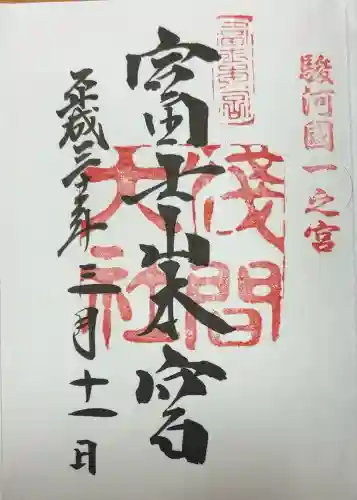 駿河國一之宮
富士山本宮
淺間大社
平成三十年三月十一日